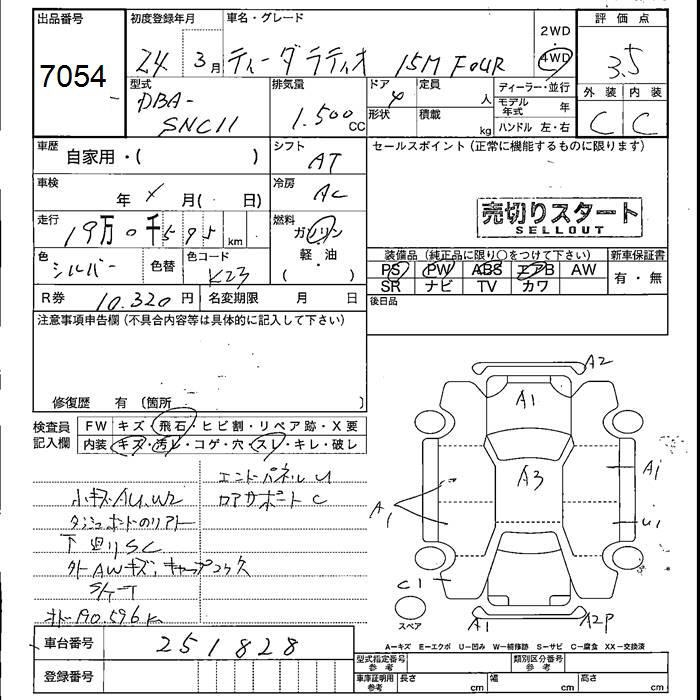 出品番号 初度登録年月 車名・グレード 2WD 評価点
7054 24 3月 ティーダラティオ 15M FOUR 4WD 3.5
型式 排気量 ドア 定員 ディーラー・並行 外装 内装
DBA- 4 人 モデル年式 年
SNC11 1.500cc 形状 積載 kg ハンドル 左・右 C C
車歴 自家用・( ) シフト AT セールスポイント (正常に機能するものに限ります)
車検 年 月( 日) 冷房 AC
売切りスタート
SELLOUT
走行 19万0千595km 燃料 ガソリン
軽・油
装備品 (純正品に限り〇をつけて下さい) 新車保証書
色 シルバー 色替 色コード K23
PS PW ABS エアB AW 有・無
SR ナビ TV カワ
R券 10.320円 名変期限 月 日 後日品
注意事項申告欄 (不具合内容等は具体的に記入して下さい)
修復歴 有 (箇所 )
検査員 FW キズ・飛石・ヒビ割・リペア跡・X要
記入欄 内装 キズ・汚レ・コゲ・穴・スレ・キレ・破レ
エンドパネルU
小キズAU.W2 ロアサポートC
下廻りSC
オドー190.596K
A2
A1
A3
A1
A1
U1
C1
スペア
A1
A2P
車台番号 251828
A-キズ E-エクボ U-凹み W-補修跡 S-サビ C-腐食 XX-交換済
登録番号
型式指定番号 参考 類別区分番号 参考
車庫証明用 参考 長さ cm 幅 cm 高さ cm